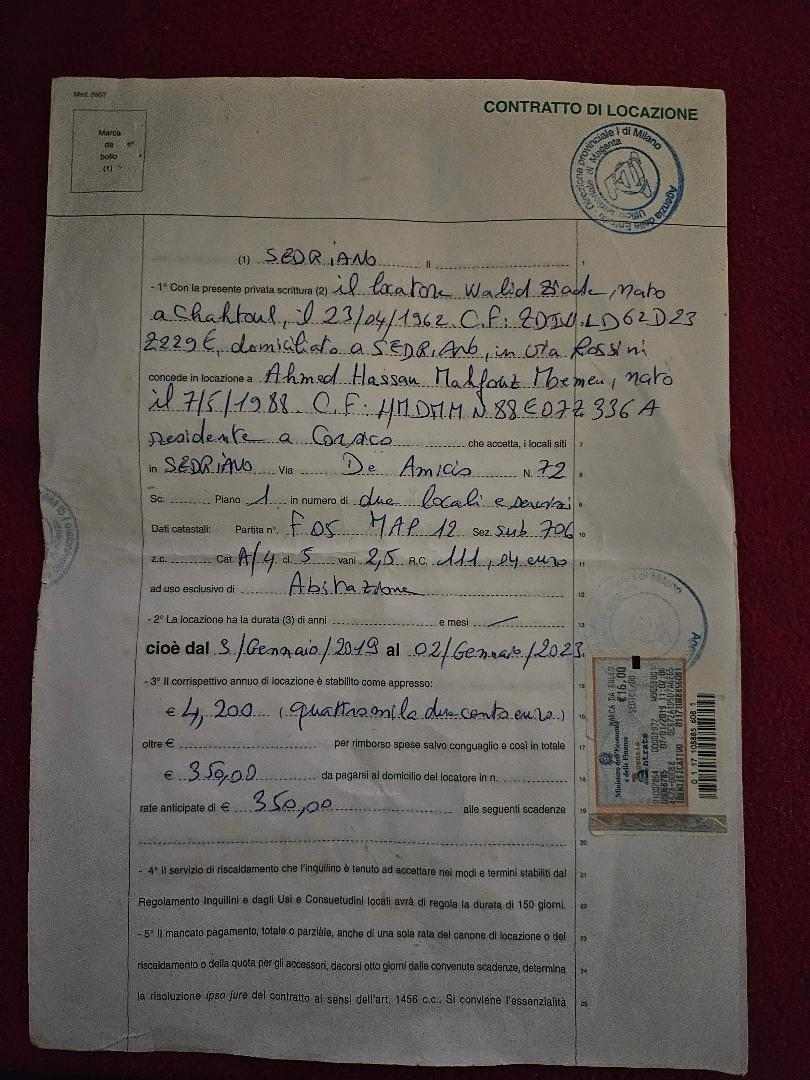 Mod. 0607
CONTRATTO DI LOCAZIONE
Marca
da
bollo
(1)
Direzione provinciale I di Milano
Agenzia delle Entrate
Ufficio Territoriale di Magenta
(1) SEDRIANO li 1
- 1° Con la presente privata scrittura (2) il locatore Walid Ziade, nato
a Chahtoul, il 23/04/1962 C.F:
domiciliato a SEDRIANO, in via Rossini
concede in locazione a Ahmed Hassan Mahfouz Momen, nato
il 7/5/1988. C.F: HMDMMN88E07Z336A
residente a Corsico che accetta, i locali siti 7
in SEDRIANO Via De Amicis N. 72 8
Sc. Piano 1 in numero di due locali e servizi 9
Dati catastali: Partita n°. F 05 MAP 12 Sez. sub 706 10
z.c. Cat. A/4 cl. 5 vani 2,5 R.C. 111,04 euro 11
ad uso esclusivo di Abitazione 12
- 2° La locazione ha la durata (3) di anni e mesi 13
cioè dal 3/Gennaio/2019 al 02/Gennaio/2023
- 3° Il corrispettivo annuo di locazione è stabilito come appresso: 15
€ 4,200 (quattromila duecento euro) 16
oltre € per rimborso spese salvo conguaglio e così in totale 17
€ 350,00 da pagarsi al domicilio del locatore in n. 18
rate anticipate di € 350,00 alle seguenti scadenze 19
20
- 4° Il servizio di riscaldamento che l'inquilino è tenuto ad accettare nei modi e termini stabiliti dal 21
Regolamento Inquilini e dagli Usi e Consuetudini locali avrà di regola la durata di 150 giorni. 22
- 5° Il mancato pagamento, totale o parziale, anche di una sola rata del canone di locazione o del 23
riscaldamento o della quota per gli accessori, decorsi otto giorni dalle convenute scadenze, determina 24
la risoluzione ipso jure del contratto ai sensi dell'art. 1456 c.c.. Si conviene l'essenzialità 25
Ministero dell'Economia
e delle Finanze
MARCA DA BOLLO
€16,00